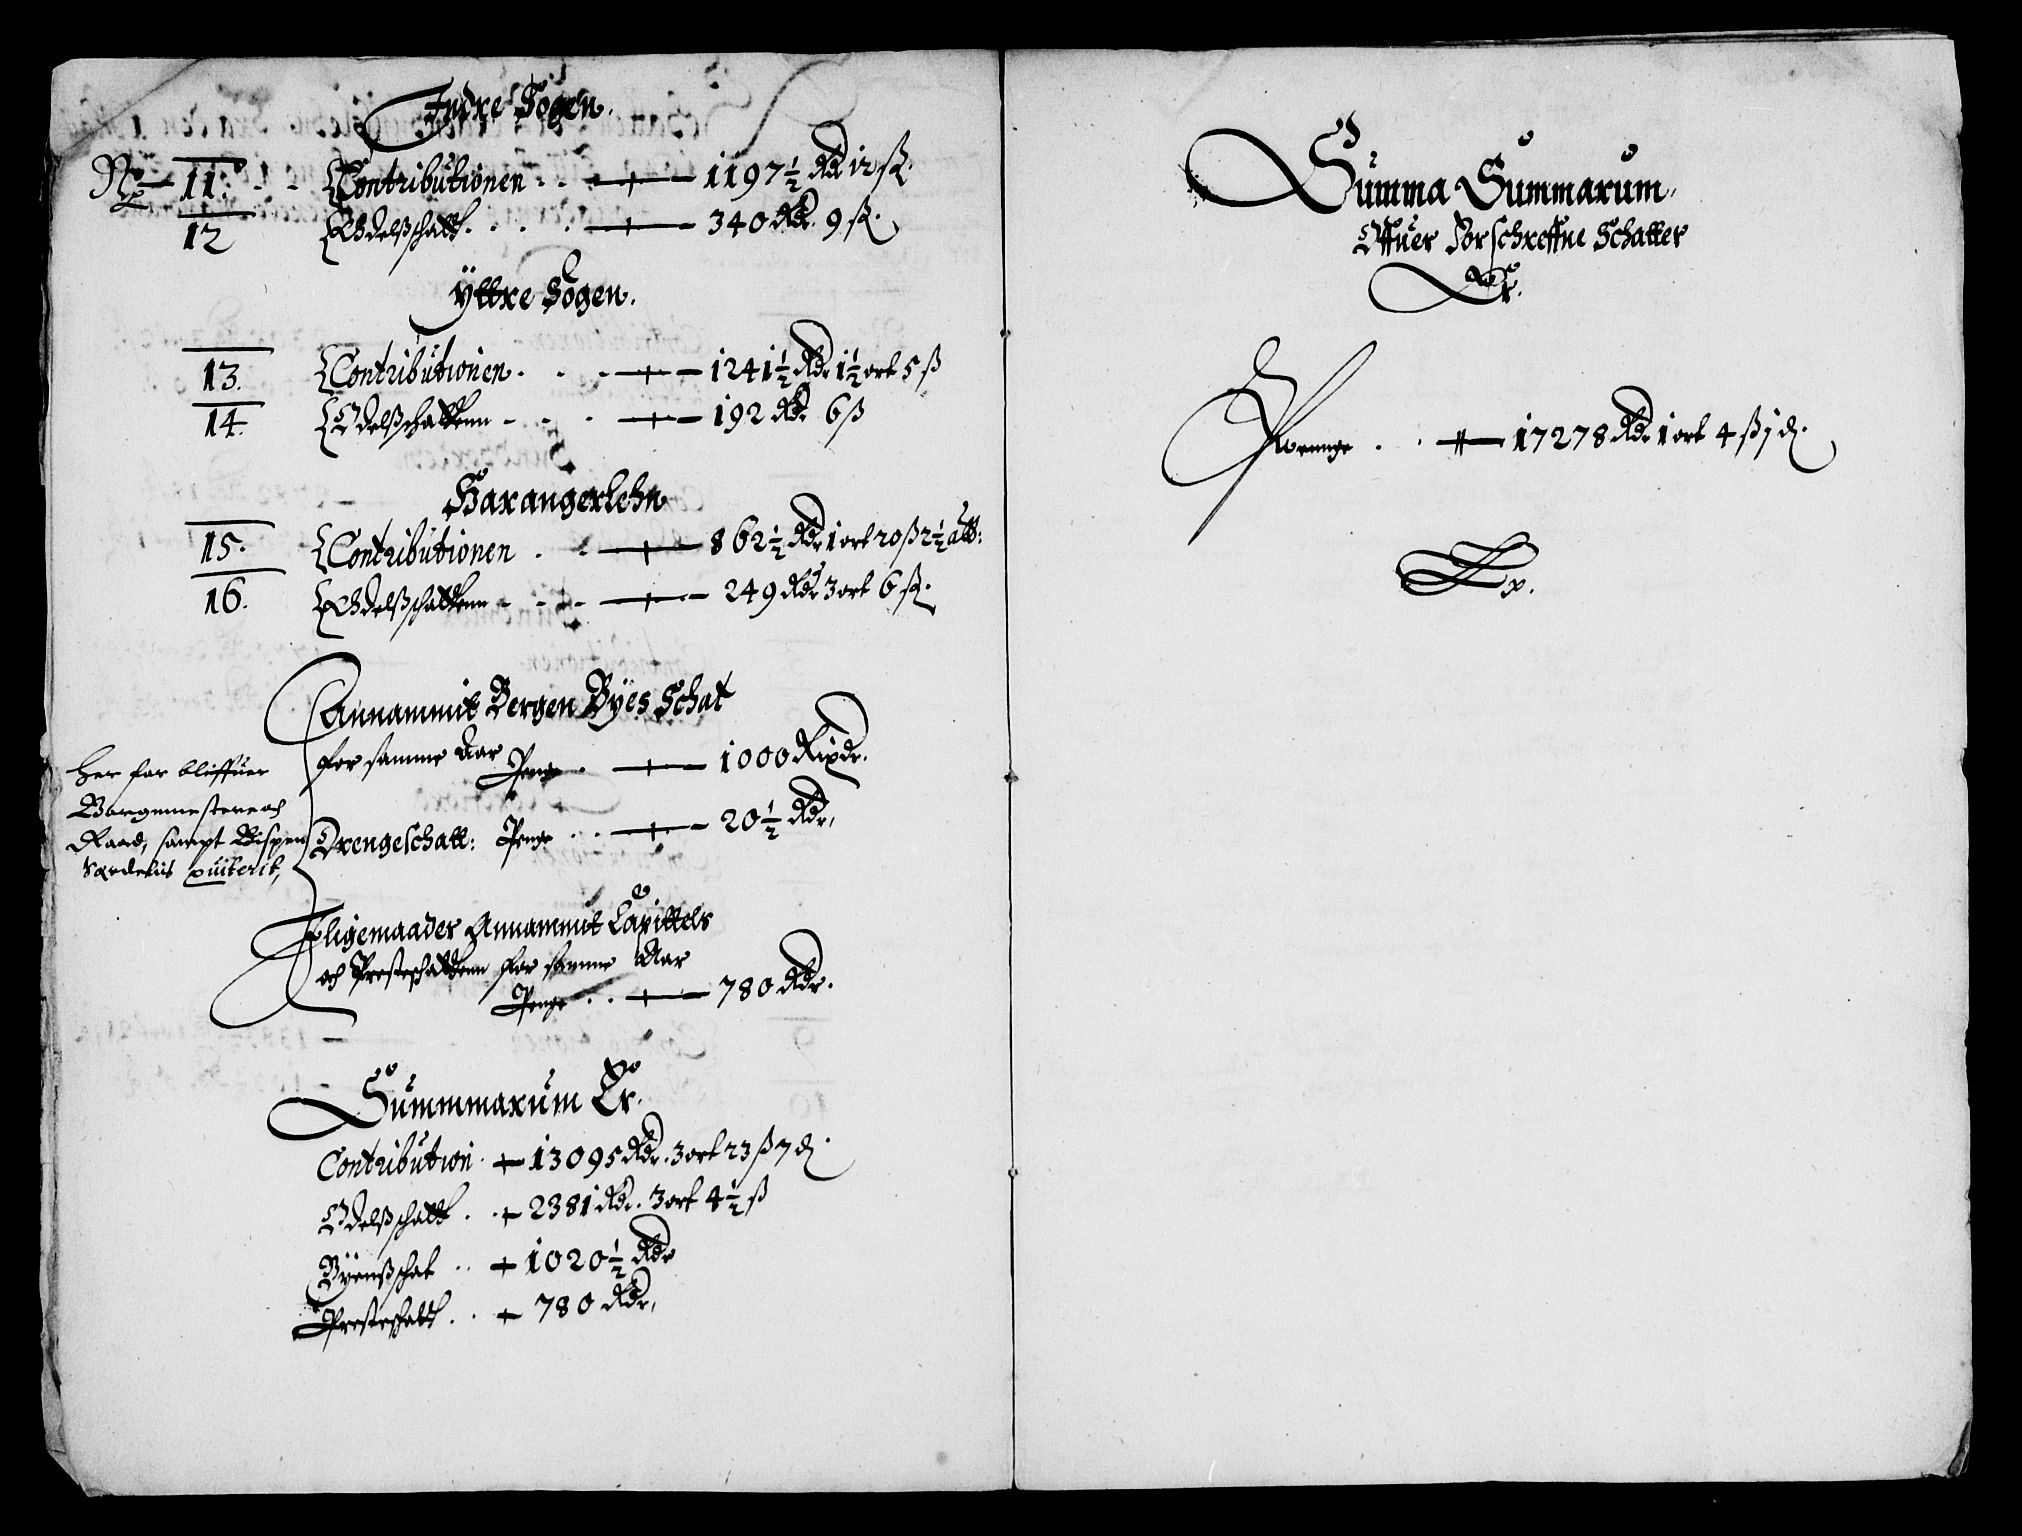 Indre Sogen.
No 11. Contributionen 1197½ Rdr 12 ß.
12 Odelßschatt. 340 Rdr. 9 ß.
Yttre Sogen.
13. Contributionen. 1241½ Rdr 1½ ort 5 ß
14. Odelßschattenn 192 Rdr 6 ß
Harangerlehn
15. Contributionen 862½ Rdr 1 ort 20 ß 2½ alb:
16. Odelßschattenn 249 Rdr 3 ort 6 ß.
Annammit Bergen Byes Schat
for samme Aar
Penge 1000 Rixdr.
Drengeschatt: Penge 20½ Rdr,
Her for bliffuer
Borgemestere och
Raad, sampt Bispen
quiterit,
Ligemaader Annammit Capittels
och Presteschattenn for samme Aar
Penge 780 Rdr.
Summmarum Er.
Contribution 13095 Rdr. 3 ort 23 ß 7 d.
Odelßschatt 2381 Rdr. 3 ort 4½ ß
Byenßschat 1020½ Rdr
Presteschatt 780 Rdr,
Summa Summarum.
Offuer Forschreffne Schatter
Er.
Penninge 17278 Rdr 1 ort 4 ß 1 d.